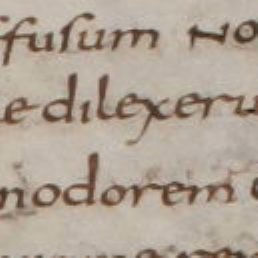 ffusum no
e dilexeru
modorem